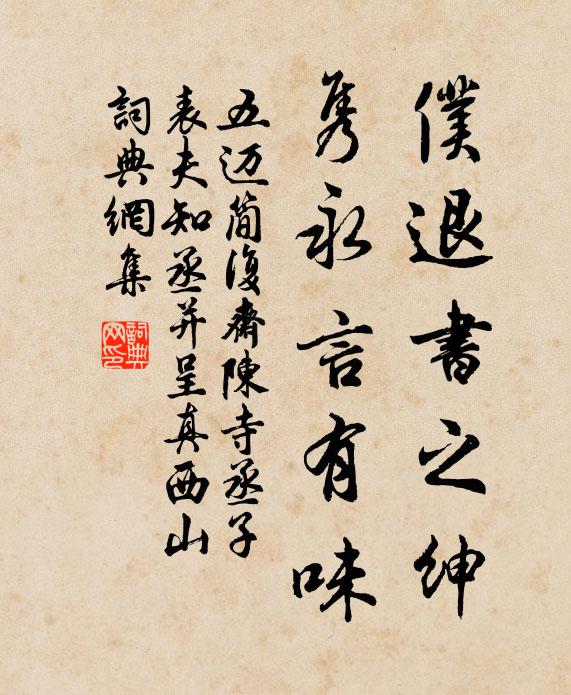 僕退書之紳
隽永言有味
五迈簡復齋陳寺丞子
表夫知丞并呈真西山
詞典網集
詞典網印